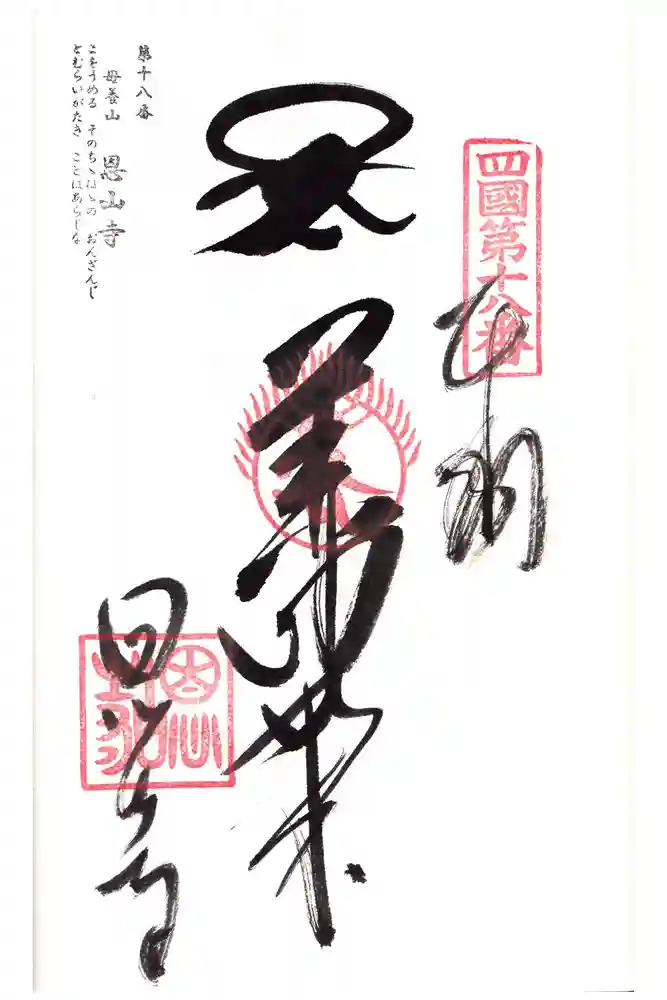 四國第十八番
奉納
薬師如来
恩山寺
第十八番
母養山 恩山寺
こをうめる そのちゝはゝの おんざんじ
とむらいがたき ことはあらじな